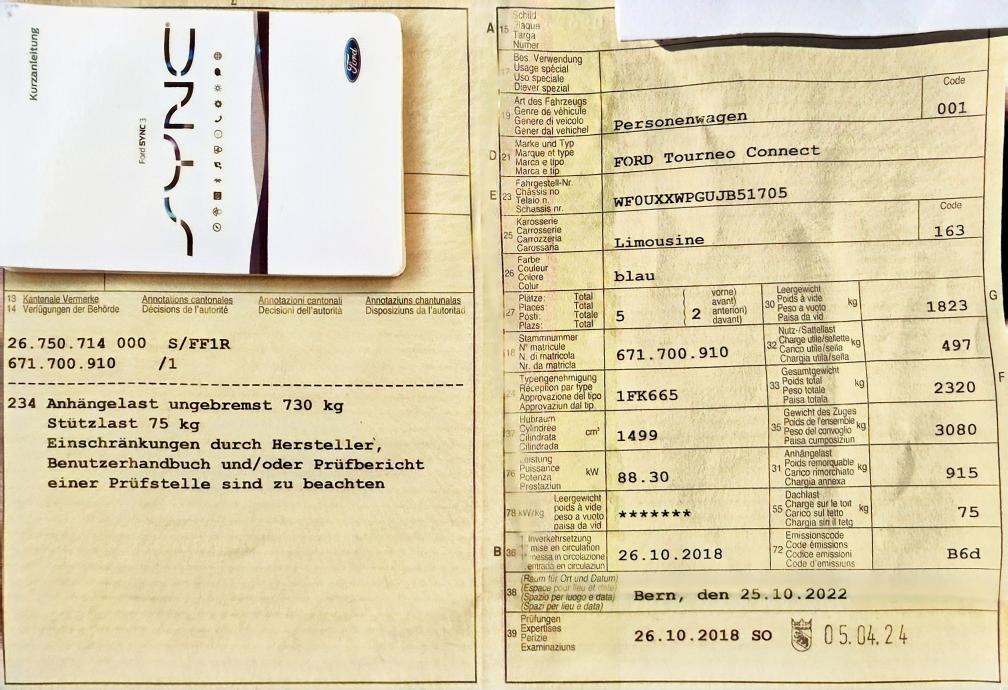 Kurzanleitung
Ford SYNC 3
SYNC
Ford
13 Kantonale Vermerke Annotations cantonales Annotazioni cantonali Annotaziuns chantunalas
14 Verfügungen der Behörde Décisions de l'autorité Decisioni dell'autorità Disposiziuns da l'autoritad
26.750.714 000 S/FF1R
671.700.910 /1
234 Anhängelast ungebremst 730 kg
Stützlast 75 kg
Einschränkungen durch Hersteller,
Benutzerhandbuch und/oder Prüfbericht
einer Prüfstelle sind zu beachten
A 15 Schild
Plaque
Targa
Numer
Bes. Verwendung
Usage spécial
Uso speciale
Diever spezial
19 Art des Fahrzeugs
Genre de véhicule
Genere di veicolo
Gener dal vehichel
Personenwagen
Code
001
D 21 Marke und Typ
Marque et type
Marca e tipo
Marca e tip
FORD Tourneo Connect
E 23 Fahrgestell-Nr.
Châssis no
Telaio n.
Schassis nr.
WF0UXXWPGUJB51705
25 Karosserie
Carrosserie
Carrozzeria
Carossaria
Limousine
Code
163
26 Farbe
Couleur
Colore
Colur
blau
27 Plätze: Total
Places: Total
Posti: Totale
Plazs: Total
5
vorne)
avant)
anteriori)
davant)
2
G
30 Leergewicht
Poids à vide
Peso a vuoto
Paisa da vid
kg
1823
18 Stammnummer
N° matricule
N. di matricola
Nr. da matricla
671.700.910
32 Nutz-/Sattellast
Charge utile/sellette
Carico utile/sella
Chargia utila/sella
kg
497
24 Typengenehmigung
Réception par type
Approvazione del tipo
Approvaziun dal tip
1FK665
F
33 Gesamtgewicht
Poids total
Peso totale
Paisa totala
kg
2320
37 Hubraum
Cylindrée
Cilindrata
Cilindrada
cm³
1499
35 Gewicht des Zuges
Poids de l'ensemble
Peso del convoglio
Paisa cumposiziun
kg
3080
76 Leistung
Puissance
Potenza
Prestaziun
kW
88.30
31 Anhängelast
Poids remorquable
Carico rimorchiato
Chargia annexa
kg
915
78 kW/kg Leergewicht
poids à vide
peso a vuoto
paisa da vid
*******
55 Dachlast
Charge sur le toit
Carico sul tetto
Chargia sin il tetg
kg
75
B 36 1. Inverkehrsetzung
1re mise en circulation
1. messa in circolazione
1. entrada en circulaziun
26.10.2018
72 Emissionscode
Code émissions
Codice emissioni
Code d'emissiuns
B6d
38 (Raum für Ort und Datum)
(Espace pour lieu et date)
(Spazio per luogo e data)
(Spazi per lieu e data)
Bern, den 25.10.2022
39 Prüfungen
Expertises
Perizie
Examinaziuns
26.10.2018 SO 05.04.24